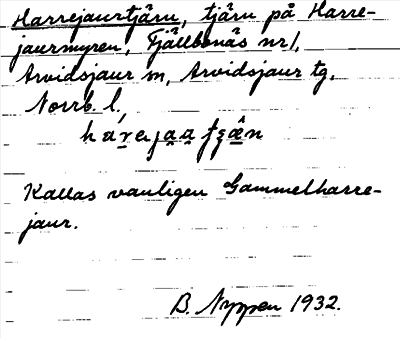 Harrejaurtjärn, tjärn på Harre-
jaurmyren, Fjällbonäs nr 1,
Arvidsjaur sn, Arvidsjaur tg,
Norrb. l.
Kallas vanligen Gammelharre-
jaur.
B. Nyppen 1932.